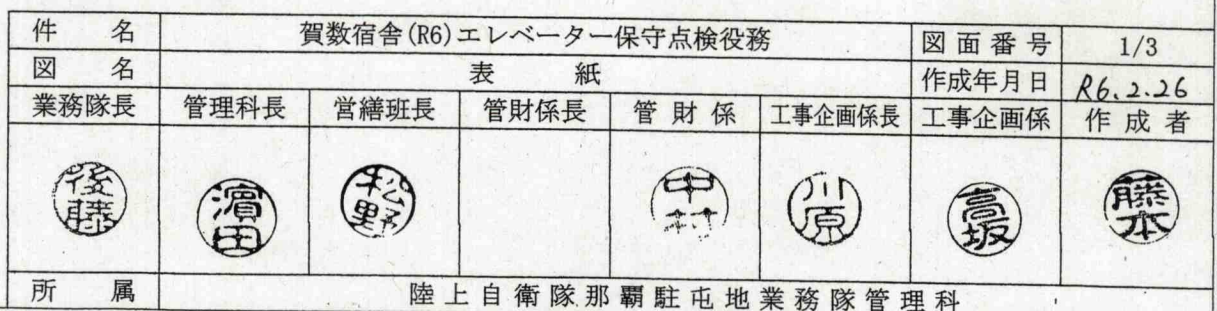 件名 賀数宿舎(R6)エレベーター保守点検役務 図面番号 1/3
図名 表紙 作成年月日 R6.2.26
業務隊長 管理科長 営繕班長 管財係長 管財係 工事企画係長 工事企画係 作成者
後藤 濱田 松野 中村 川原 高坂 藤本
所属 陸上自衛隊那覇駐屯地業務隊管理科